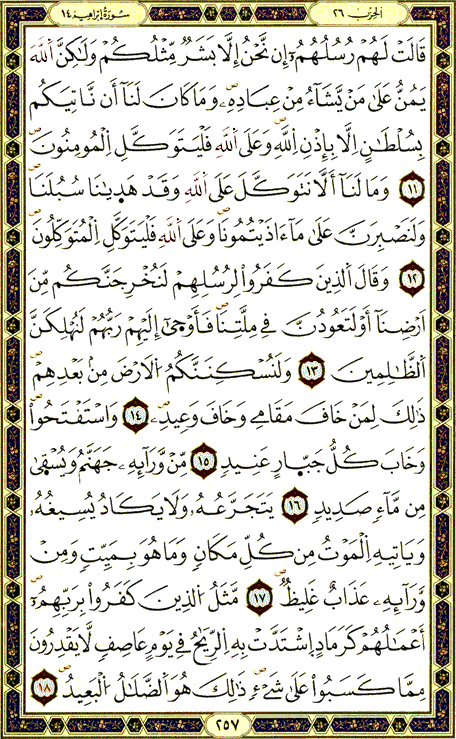 الحزب ٢٦
سورة إبراهيم ١٤
قَالَتْ لَهُمْ رُسُلُهُمُۥٓ إِن نَّحْنُ إِلَّا بَشَرٌ مِّثْلُكُمْ وَلَٰكِنَّ اَللَّهَ
يَمُنُّ عَلَىٰ مَنْ يَّشَآءُ مِنْ عِبَادِهِۦ وَمَا كَانَ لَنَآ أَن نَّاتِيَكُم
بِسُلْطَٰنٍ اِلَّا بِإِذْنِ اِللَّهِ وَعَلَى اَللَّهِ فَلْيَتَوَكَّلِ اِلْمُومِنُونَ
١١ وَمَا لَنَآ أَلَّا نَتَوَكَّلَ عَلَى اَللَّهِ وَقَدْ هَدَىٰنَا سُبُلَنَا
وَلَنَصْبِرَنَّ عَلَىٰ مَآ ءَاذَيْتُمُونَا وَعَلَى اَللَّهِ فَلْيَتَوَكَّلِ اِلْمُتَوَكِّلُونَ
١٢ وَقَالَ اَلذِينَ كَفَرُواْ لِرُسُلِهِمْ لَنُخْرِجَنَّكُم مِّنَ
اَرْضِنَآ أَوْ لَتَعُودُنَّ فِي مِلَّتِنَا فَأَوْحَىٰٓ إِلَيْهِمْ رَبُّهُمْ لَنُهْلِكَنَّ
اَلظَّٰلِمِينَ ١٣ وَلَنُسْكِنَنَّكُمُ اُلَارْضَ مِنۢ بَعْدِهِمْ
ذَٰلِكَ لِمَنْ خَافَ مَقَامِي وَخَافَ وَعِيدِۦ ١٤ وَاسْتَفْتَحُواْ
وَخَابَ كُلُّ جَبَّارٍ عَنِيدٍ ١٥ مِّنْ وَّرَآئِهِۦ جَهَنَّمُ وَيُسْقَىٰ
مِن مَّآءٍ صَدِيدٍ ١٦ يَتَجَرَّعُهُۥ وَلَا يَكَادُ يُسِيغُهُۥ
وَيَاتِيهِ اِلْمَوْتُ مِن كُلِّ مَكَانٍ وَمَا هُوَ بِمَيِّتٍ وَمِنْ
وَّرَآئِهِۦ عَذَابٌ غَلِيظٌ ١٧ مَّثَلُ اُلذِينَ كَفَرُواْ بِرَبِّهِمُۥٓ
أَعْمَٰلُهُمْ كَرَمَادٍ اِشْتَدَّتْ بِهِ اِلرِّيَٰحُ فِي يَوْمٍ عَاصِفٍ لَّا يَقْدِرُونَ
مِمَّا كَسَبُواْ عَلَىٰ شَےْءٍ ذَٰلِكَ هُوَ اَلضَّلَٰلُ اُلْبَعِيدُ ١٨
٢٥٧